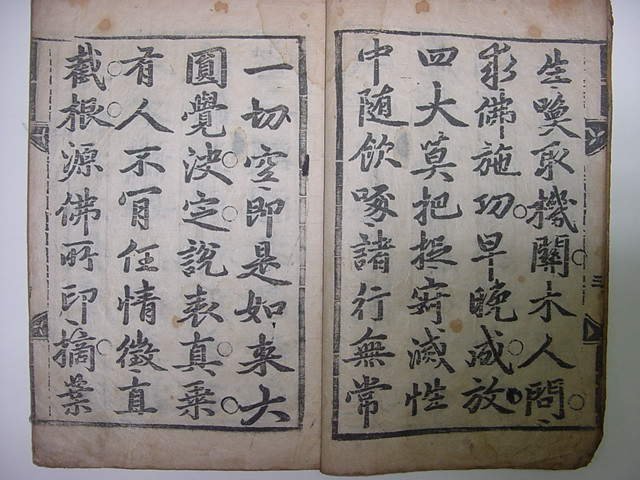 三
生喚取機關木人問
求佛施功早晚成放
四大莫把捉寂滅性
中随飲啄諸行無常
一切空即是如来大
圓覺决定説表真乗
有人不肎任情徵直
截根源佛所印摘葉